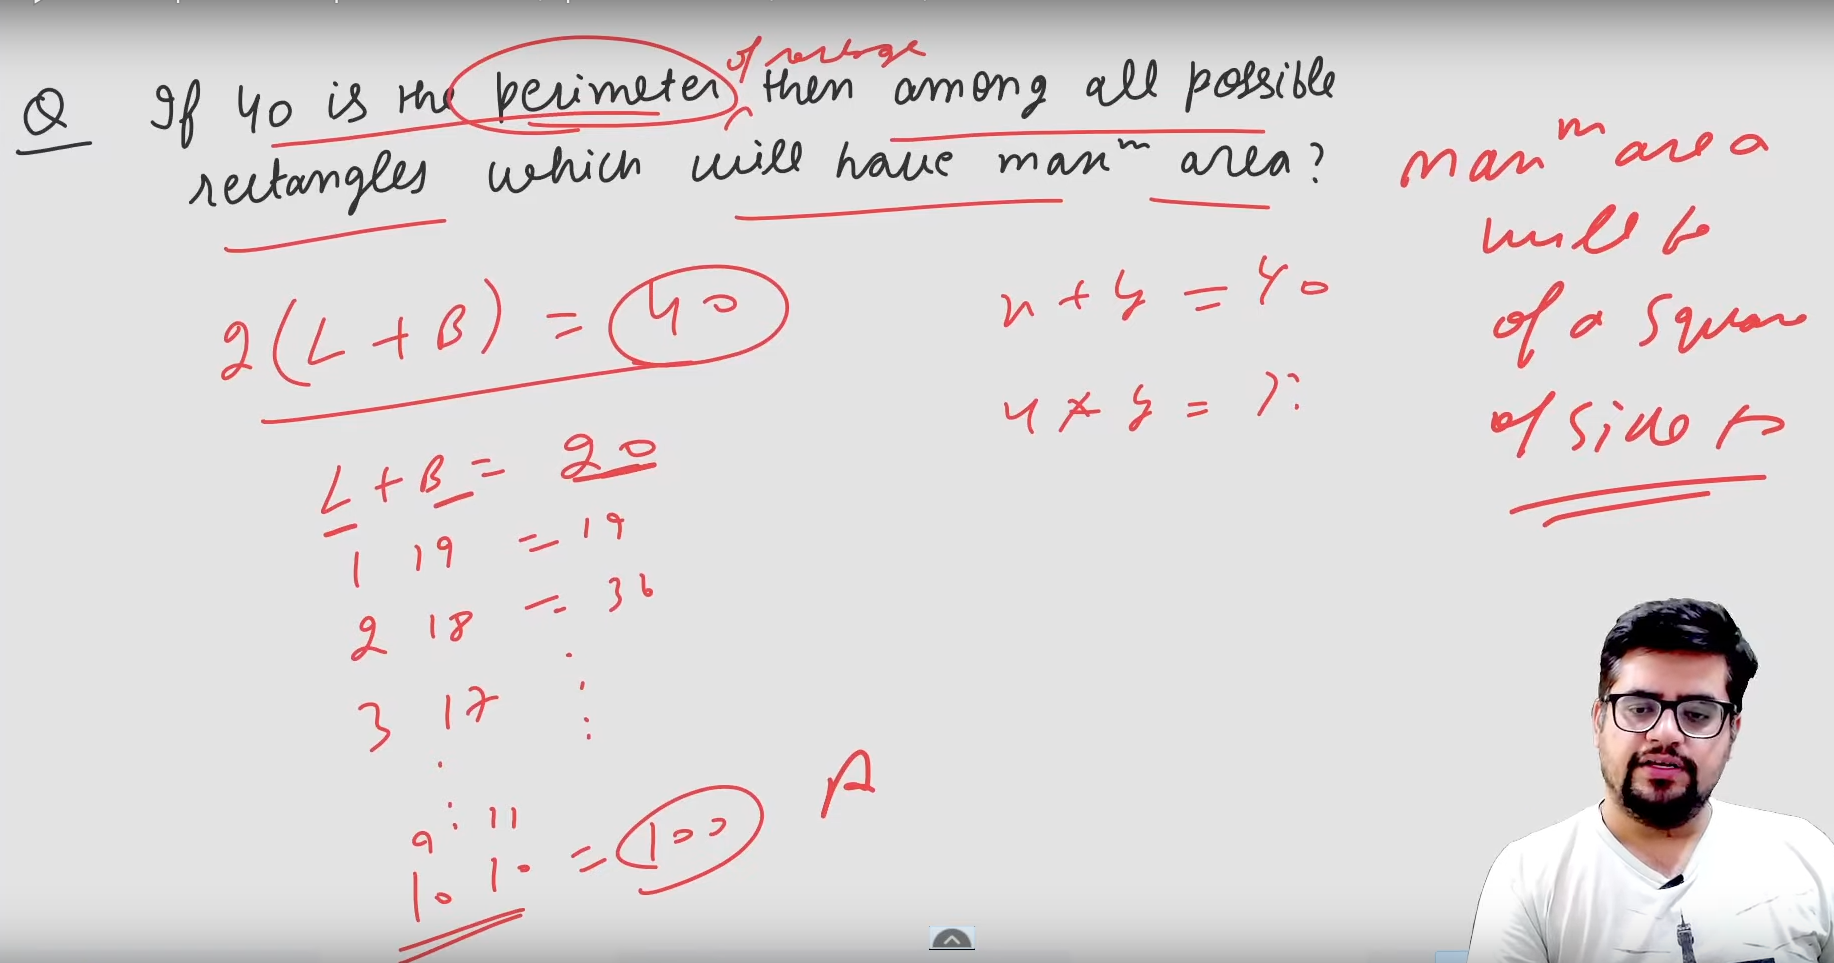 of rectange
Q If 40 is the perimeter then among all possible
rectangles which will have maxᵐ area?
2(L + B) = 40
L + B = 20
1 19 = 19
2 18 = 36
3 17
9 11
10 10 = 100 A
x + y = 40
x * y = ??
maxᵐ area
will be
of a square
of side 10